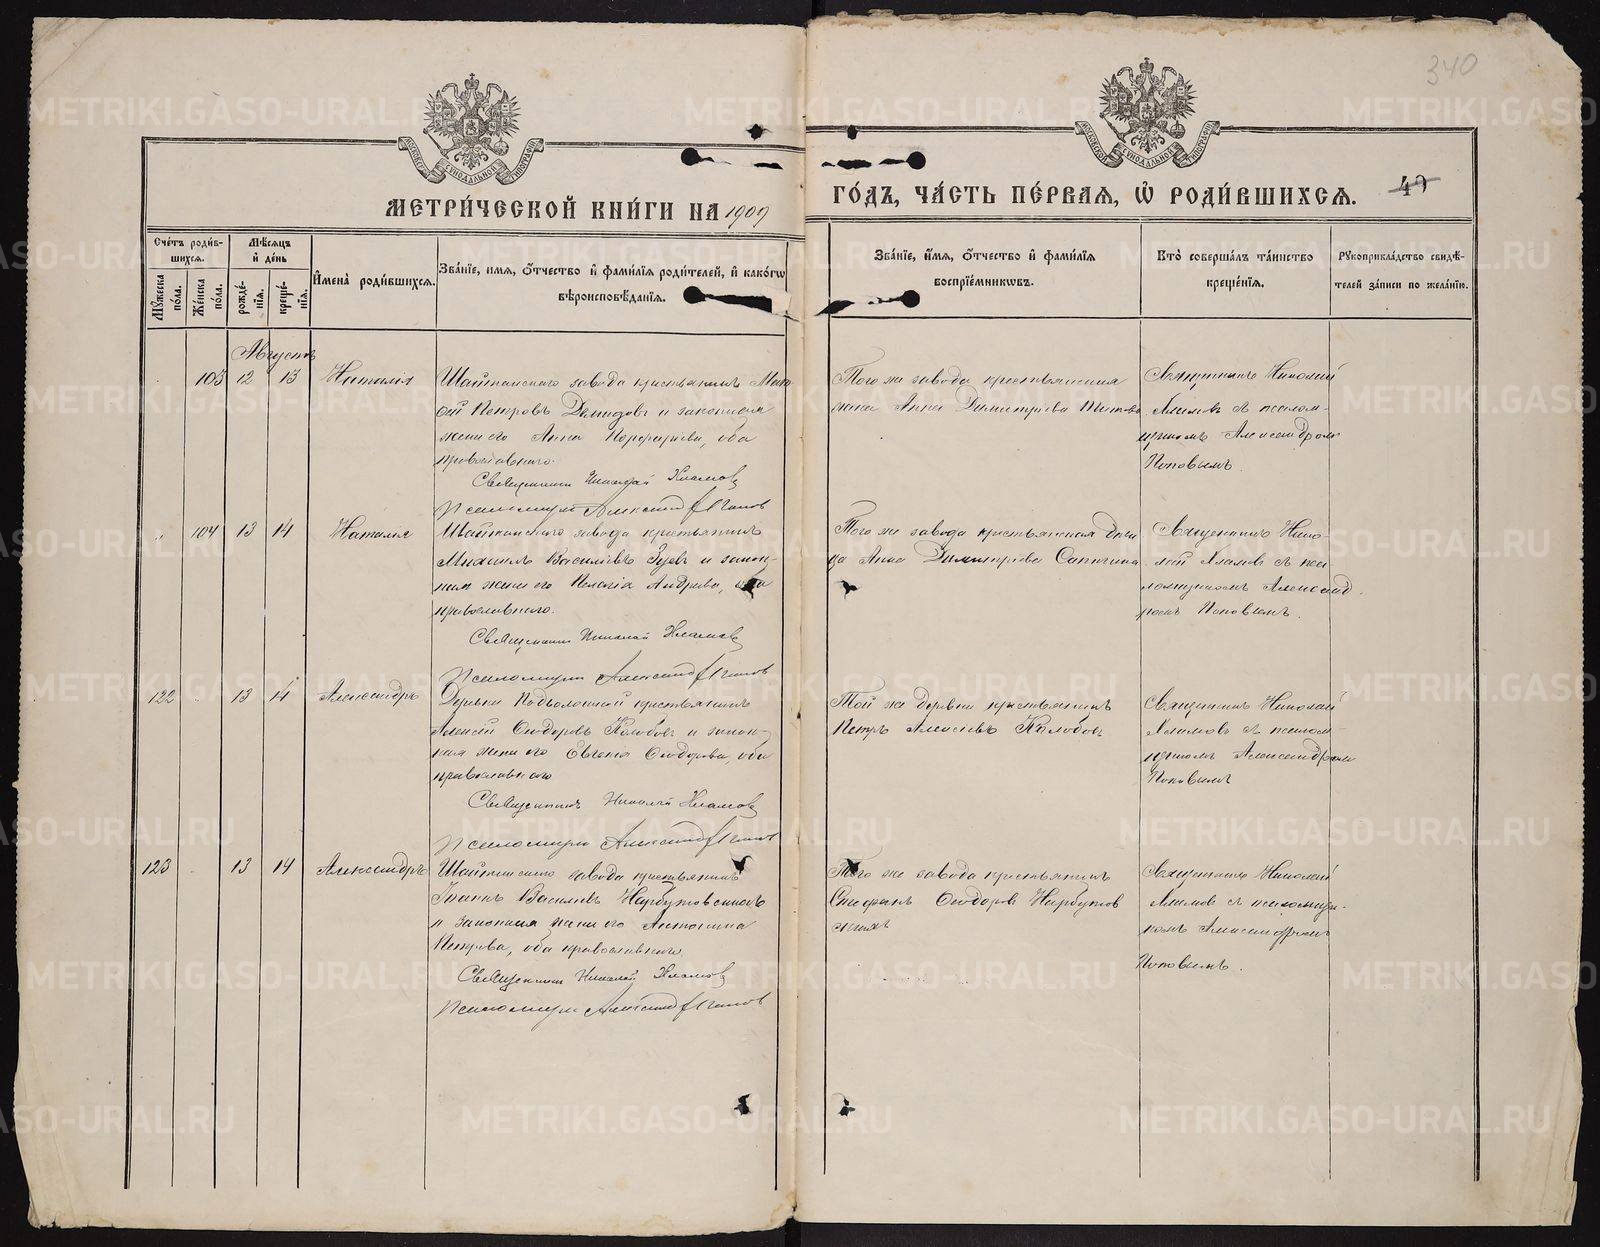 340
МОСКОВСКОЙ СѴНОДАЛЬНОЙ ТИПОГРАФІИ
МОСКОВСКОЙ СѴНОДАЛЬНОЙ ТИПОГРАФІИ
МЕТРИ́ЧЕСКОЙ КНИ́ГИ НА 1909
ГО́ДЪ, ЧА́СТЬ ПЕ́РВАЯ, Ѡ҆ РОДИ́ВШИХСЯ.
Сче́тъ роди́в-
шихся.
Мѣ́сяцъ
и҆ де́нь
Мꙋ́жеска по́ла.
Же́нска по́ла.
рожде́-нїя.
креще́-нїя.
И҆мена̀ роди́вшихся.
Зва́нїе, и҆́мя, ѻ҆́тчество и҆ фами́лїя роди́телей, и҆ како́гѡ
вѣроисповѣ́данїя.
Зва́нїе, и҆́мя, ѻ҆́тчество и҆ фами́лїя
воспрїе́мникѡвъ.
Кто̀ соверша́лъ та́инство
креще́нїя.
Рꙋкоприкла́дство свидѣ́-
телей за́писи по жела́нїю.
Августъ
103 12 13 Наталія
Шайтанскаго завода крестьянинъ
Петровъ Демидовъ и законная
жена его Анна Порфирьева, оба
православнаго.
Священникъ Николай Хламовъ
Псаломщикъ Александръ Поповъ
Того же завода крестьянская
жена Анна Димитріева
Священникъ Николай
Хламовъ съ псалом-
щикомъ Александромъ
Поповымъ.
104 13 14 Наталія
Шайтанскаго завода крестьянинъ
Михаилъ Васильевъ Зуевъ и закон-
ная жена его Пелагія Андреева, оба
православнаго.
Священникъ Николай Хламовъ
Псаломщикъ Александръ Поповъ
Того же завода крестьянская деви
ца Анна Димитріева Сапегина
Священникъ Нико-
лай Хламовъ съ пса-
ломщикомъ Александ
ромъ Поповымъ.
122 13 14 Александръ
Деревни Подволошной крестьянинъ
Алексѣй Ѳеодоровъ Колобовъ и закон-
ная жена его Евгенія Ѳеодорова, оба
православнаго
Священникъ Николай Хламовъ
Псаломщикъ Александръ Поповъ
Той же деревни крестьянинъ
Петръ Алексѣевъ Колобовъ
Священникъ Николай
Хламовъ съ псалом-
щикомъ Александромъ
Поповымъ
123 13 14 Александръ
Шайтанскаго завода крестьянинъ
Іоаннъ Васильевъ Нарбутовскихъ
и законная жена его Антонина
Петрова, оба православнаго
Священникъ Николай Хламовъ
Псаломщикъ Александръ Поповъ
Того же завода крестьянинъ
Стефанъ Ѳеодоровъ Нарбутов
скихъ
Священникъ Николай
Хламовъ съ псаломщи-
комъ Александромъ
Поповымъ.
METRIKI.GASO-URAL.RU